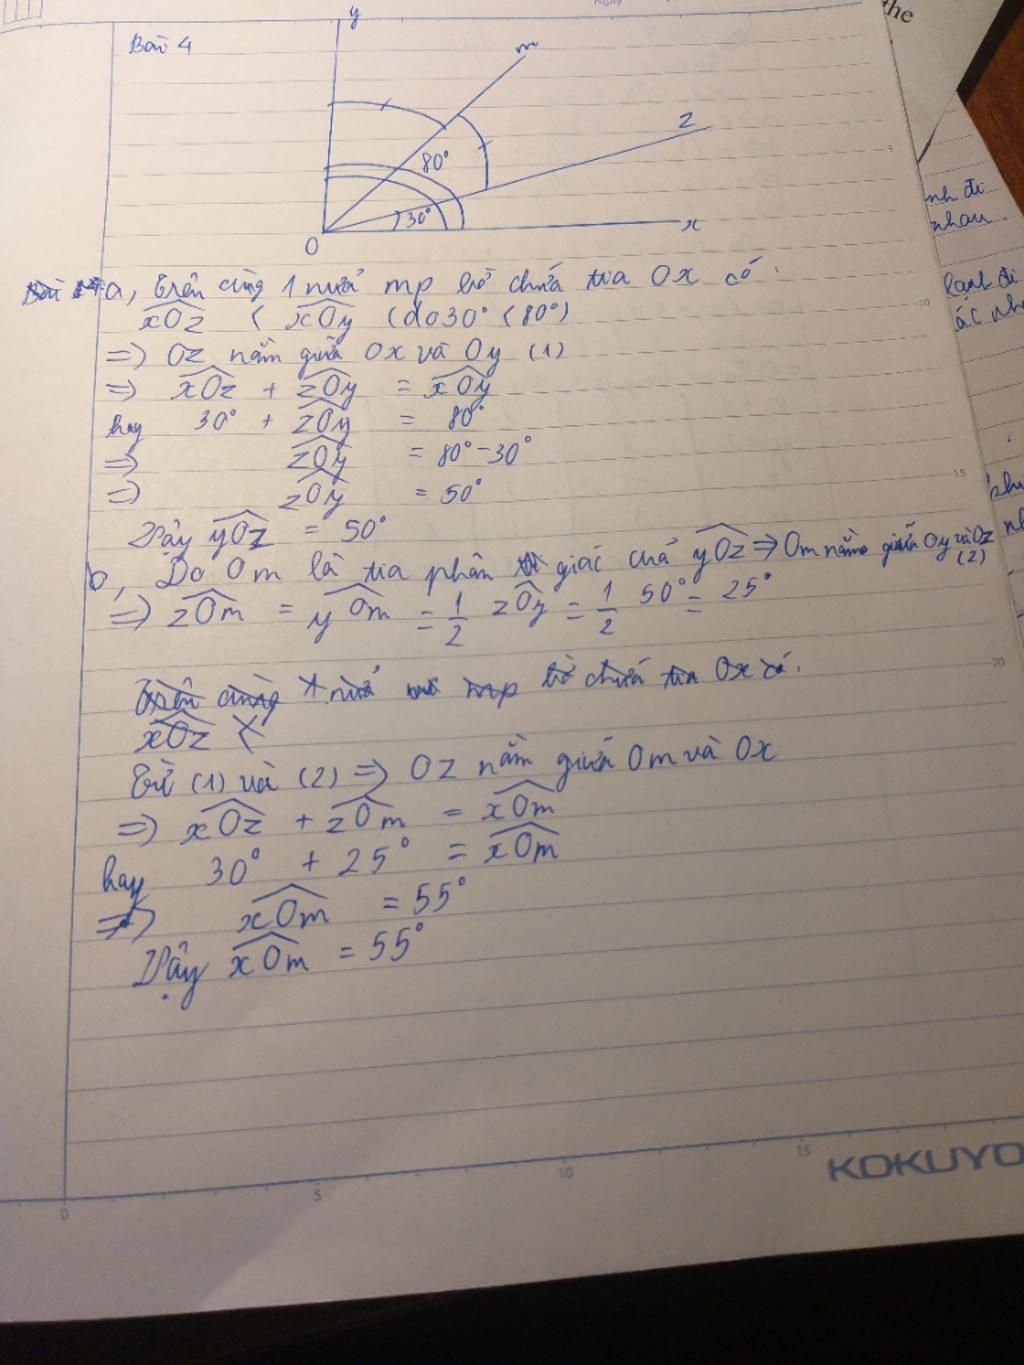 the
y
Bài 4
m
z
80°
30°
x
O
nh đi
nhau
a, Trên cùng 1 nửa mp bờ chứa tia Ox có:
xOz < xOy (do 30° < 80°)
=> Oz nằm giữa Ox và Oy (1)
=> xOz + zOy = xOy
hay 30° + zOy = 80°
=> zOy = 80° - 30°
=> zOy = 50°
Vậy yOz = 50°
b, Do Om là tia phân giác của yOz => Om nằm giữa Oy và Oz (2)
=> zOm = yOm = 1/2 zOy = 1/2 50° = 25°
Trên cùng 1 nửa mp bờ chứa tia Ox có:
xOz <
Từ (1) và (2) => Oz nằm giữa Om và Ox
=> xOz + zOm = xOm
hay 30° + 25° = xOm
=> xOm = 55°
Vậy xOm = 55°
5
10
15
20
0
5
10
15
KOKUYO